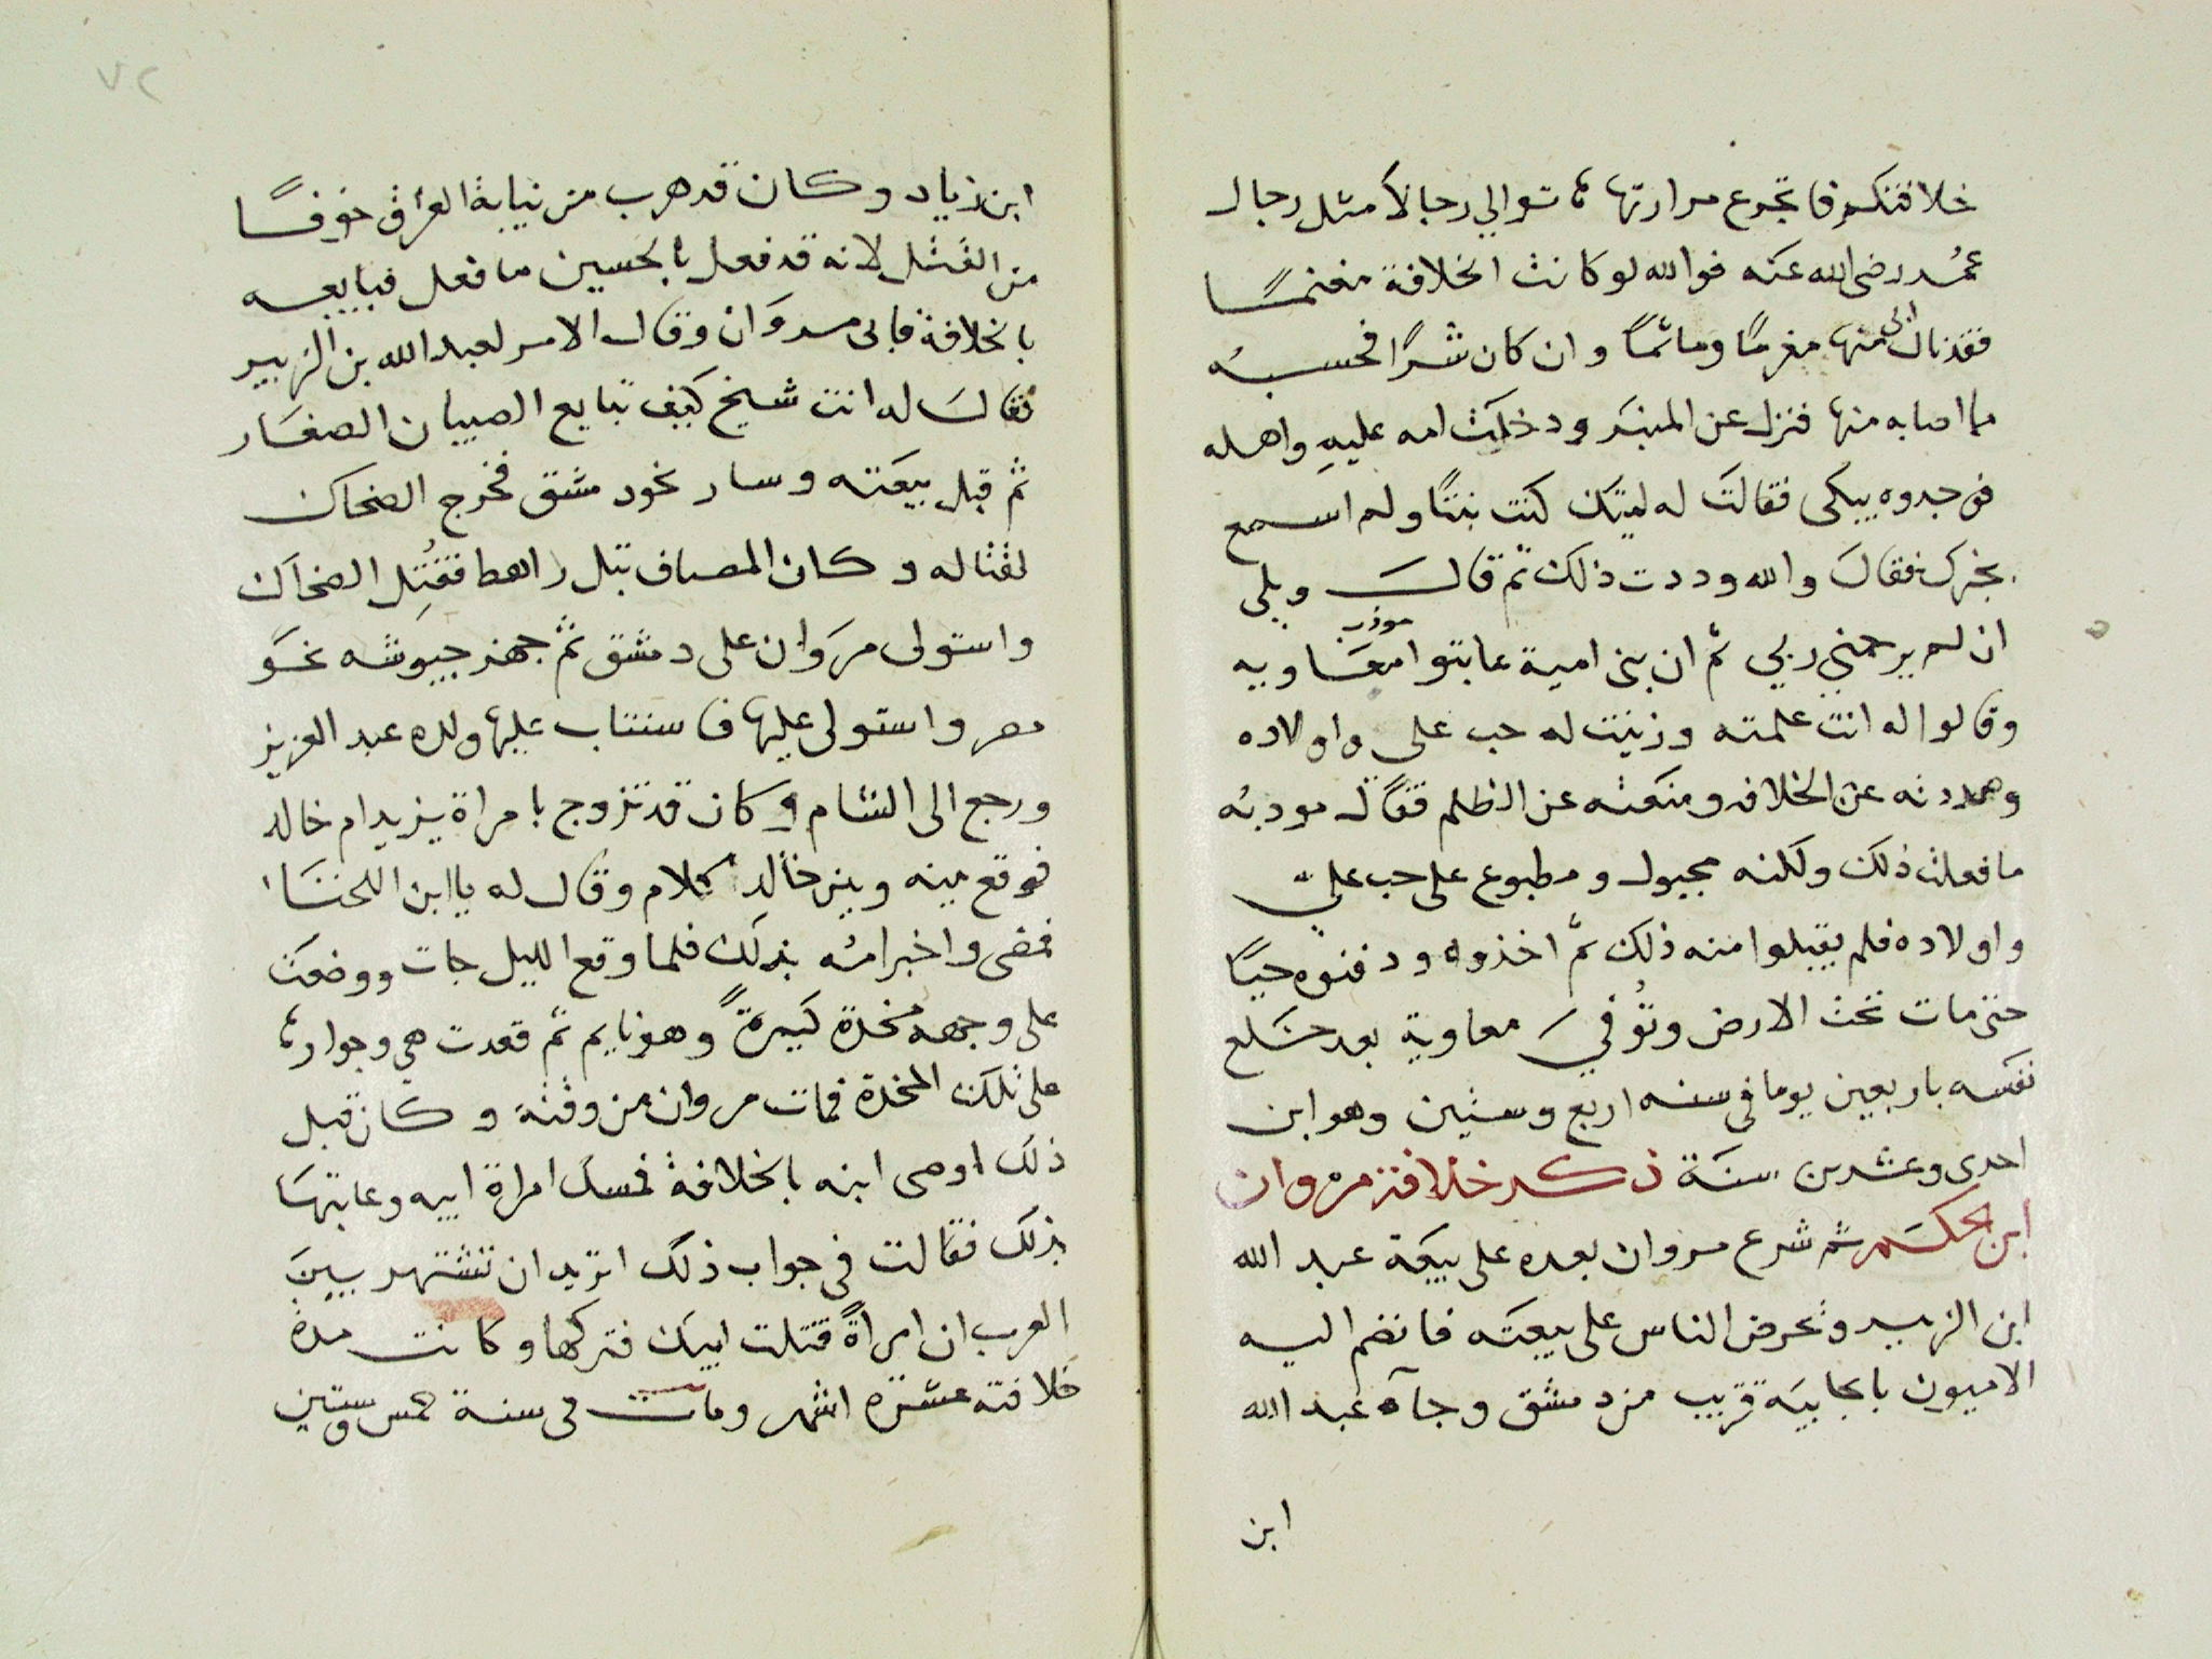 خلافتكم فاتجرع مرارتها ، توالي رجالا مثل رجال
عمر رضي الله عنه فوالله لو كانت الخلافة مغنمًا
فقد نال ابي منها مغرمًا وماثمًا وان كان شرًا فحسبه
ما اصابه منها فنزل عن المنبر ودخلت امه عليه واهله
فوجدوه يبكى فقالت له ليتك كنت بنتًا ولم اسمع
بخبرك فقال والله وددت ذلك ثم قال ويلي
ان لم يرحمني ربي ثم ان بني امية عاتبوا مودب معاويه
وقالوا له انت علمته وزينت له حب على واولاده
وهددته عن الخلافه ومنعته عن الظلم فقال مودبه
ما فعلت ذلك ولكنه مجبول ومطبوع على حب علي
واولاده فلم يقبلوا منه ذلك ثم اخذوه ودفنوه حيًا
حتى مات تحت الارض وتُوفي معاوية بعد خلع
نفسه باربعين يوما في سنه اربع وستين وهو ابن
احدى وعشرين سنة ذكر خلافة مروان
ابن الحكم ثم شرع مروان بعده على بيعة عبد الله
ابن الزبير وتحرض الناس على بيعته فانضم اليه
الاميون بالجابيه قريب من دمشق وجآه عبد الله
ابن
٧٢
ابن زياد وكان قد هرب من نيابة العراق خوفًا
من القتل لانه قد فعل بالحسين ما فعل فبايعه
بالخلافة فابى مروان وقال الامر لعبد الله بن الزبير
فقال له انت شيخ كيف تبايع الصبيان الصغار
ثم قبل بيعته وسار نحو دمشق فخرج الضحاك
لقتاله وكان المصاف بتل راهط فقُتِل الضحاك
واستولى مروان على دمشق ثم جهز جيوشه نحو
مصر واستولى عليها فاستناب عليها ولده عبد العزيز
ورجع الى الشام وكان قد تزوج بامراة يزيد ام خالد
فوقع بينه وبين خالد كلام وقال له يا ابن اللخنا
فمضى واخبر امه بذلك فلما وقع الليل جات ووضعت
على وجهه مخدة كبيرةً وهو نايم ثم قعدت هي وجوارها
على تلك المخدة فمات مروان من وقته وكان قبل
ذلك اوصى ابنه بالخلافة فمسك امراة ابيه وعاتبها
بذلك فقالت في جواب ذلك اتريد ان تشتهر بين
العرب ان امراةً قتلت ابيك فتركها وكانت مدة
خلافته عشرة اشهر ومات في سنة خمس وستين